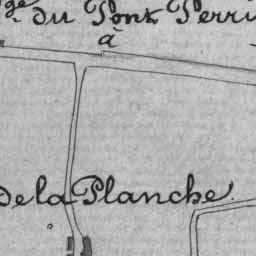 ge du Pont Perri
à
de la Planche